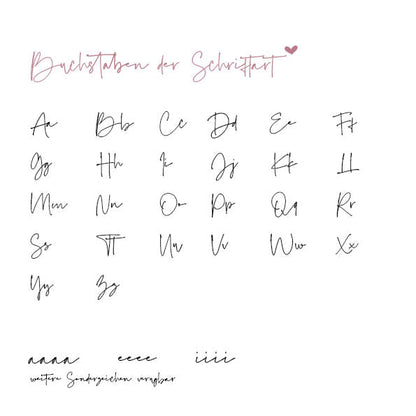 Buchstaben der Schriftart
Aa Bb Cc Dd Ee Ff
Gg Hh Ii Jj Kk Ll
Mm Nn Oo Pp Qq Rr
Ss Tt Uu Vv Ww Xx
Yy Zz
aaaa eeee iiii
weitere Sonderzeichen verfügbar